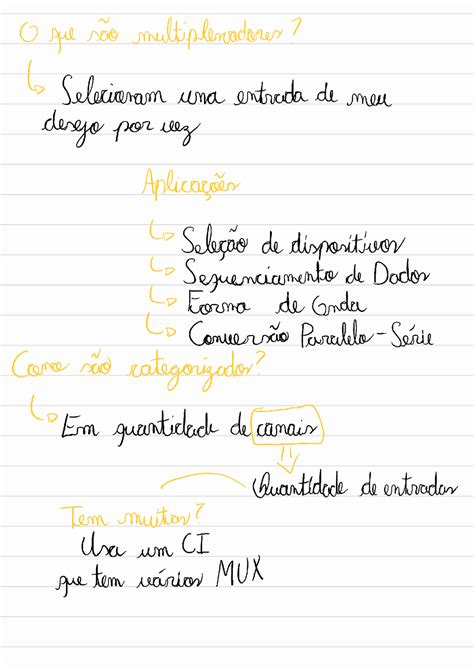 O que são multiplexadores?
Selecionam uma entrada de meu
desejo por vez
Aplicações
Seleção de dispositivos
Sequenciamento de Dados
Forma de Onda
Conversão Paralelo-Série
Como são categorizados?
Em quantidade de canais
Quantidade de entradas
Tem muitos?
Usa um CI
que tem vários MUX